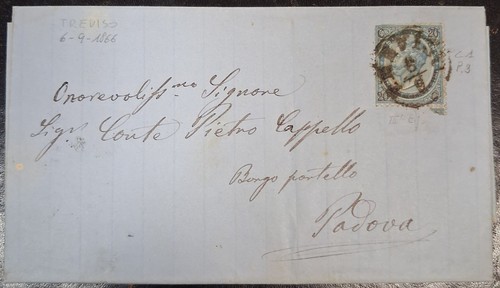 TREVISO
6-9-1866
C 20
Onorevoliss.mo Signore
Sig.r Conte Pietro Cappello
Borgo portello
Padova